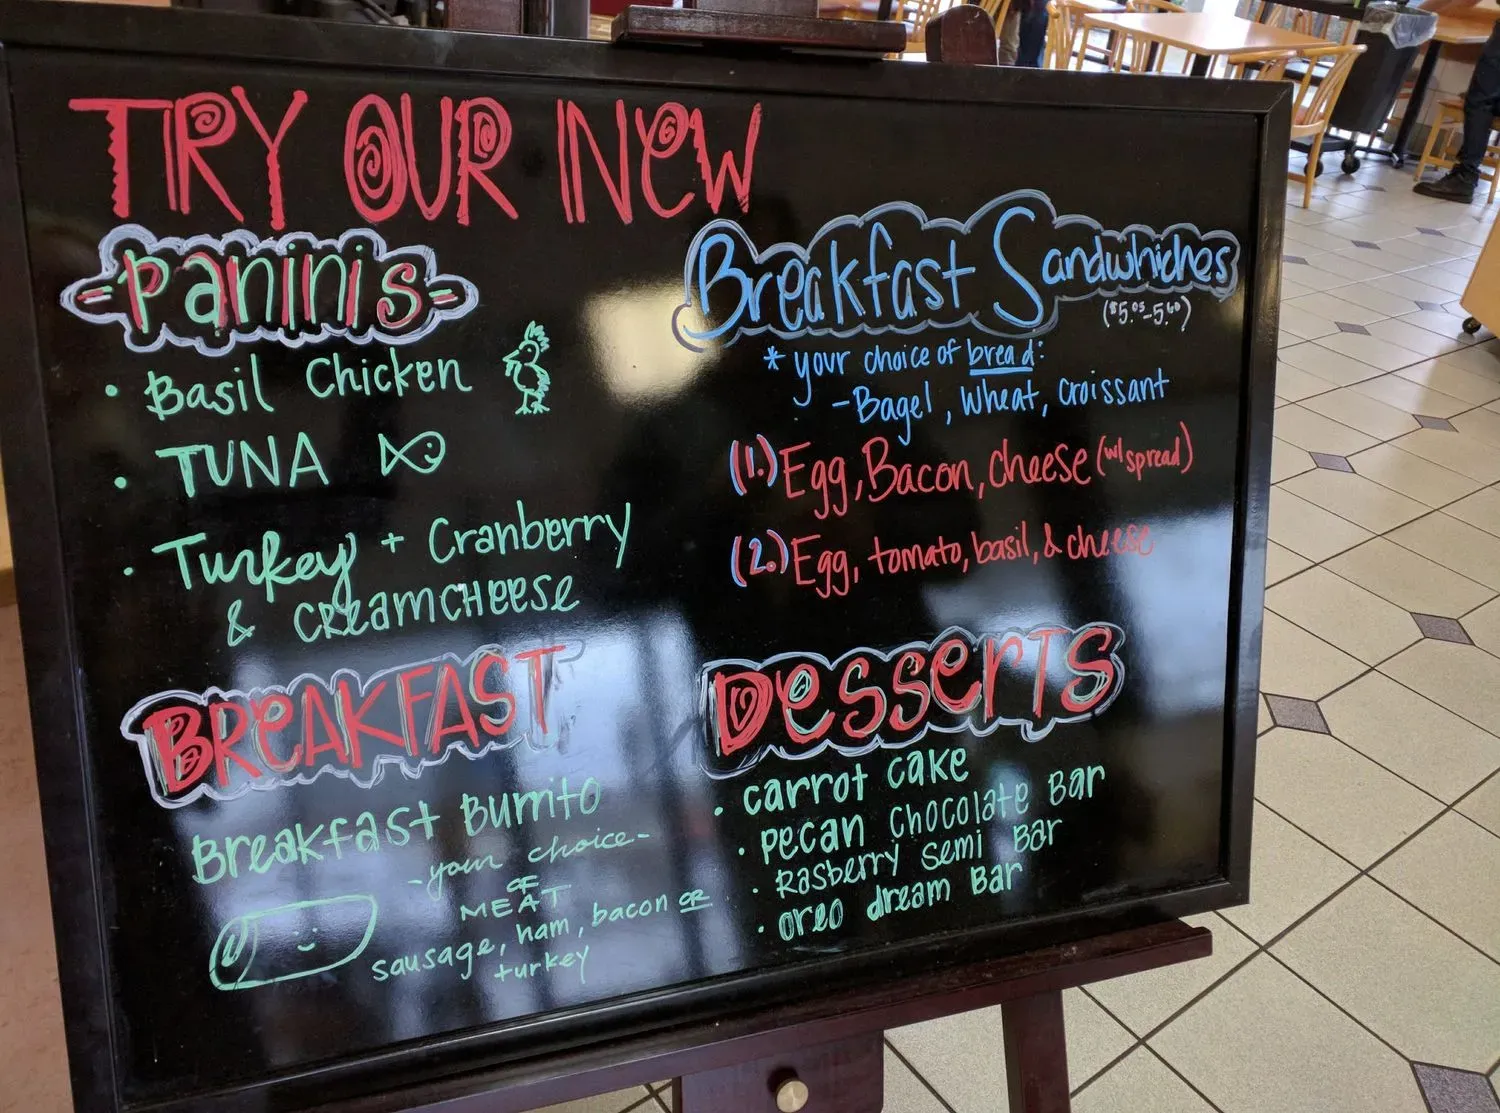 TRY OUR NEW
PANINIS
• Basil Chicken
• TUNA
• Turkey + Cranberry
& CREAMCHEESE
BREAKFAST
Breakfast Burrito
-your choice-
OF
MEAT
sausage, ham, bacon OR
turkey
Breakfast Sandwhiches
($5.05-5.60)
* your choice of bread:
- Bagel, wheat, croissant
(1.) Egg, Bacon, cheese (w/ spread)
(2.) Egg, tomato, basil, & cheese
Desserts
• carrot cake
• pecan chocolate Bar
• Rasberry semi Bar
• oreo dream Bar